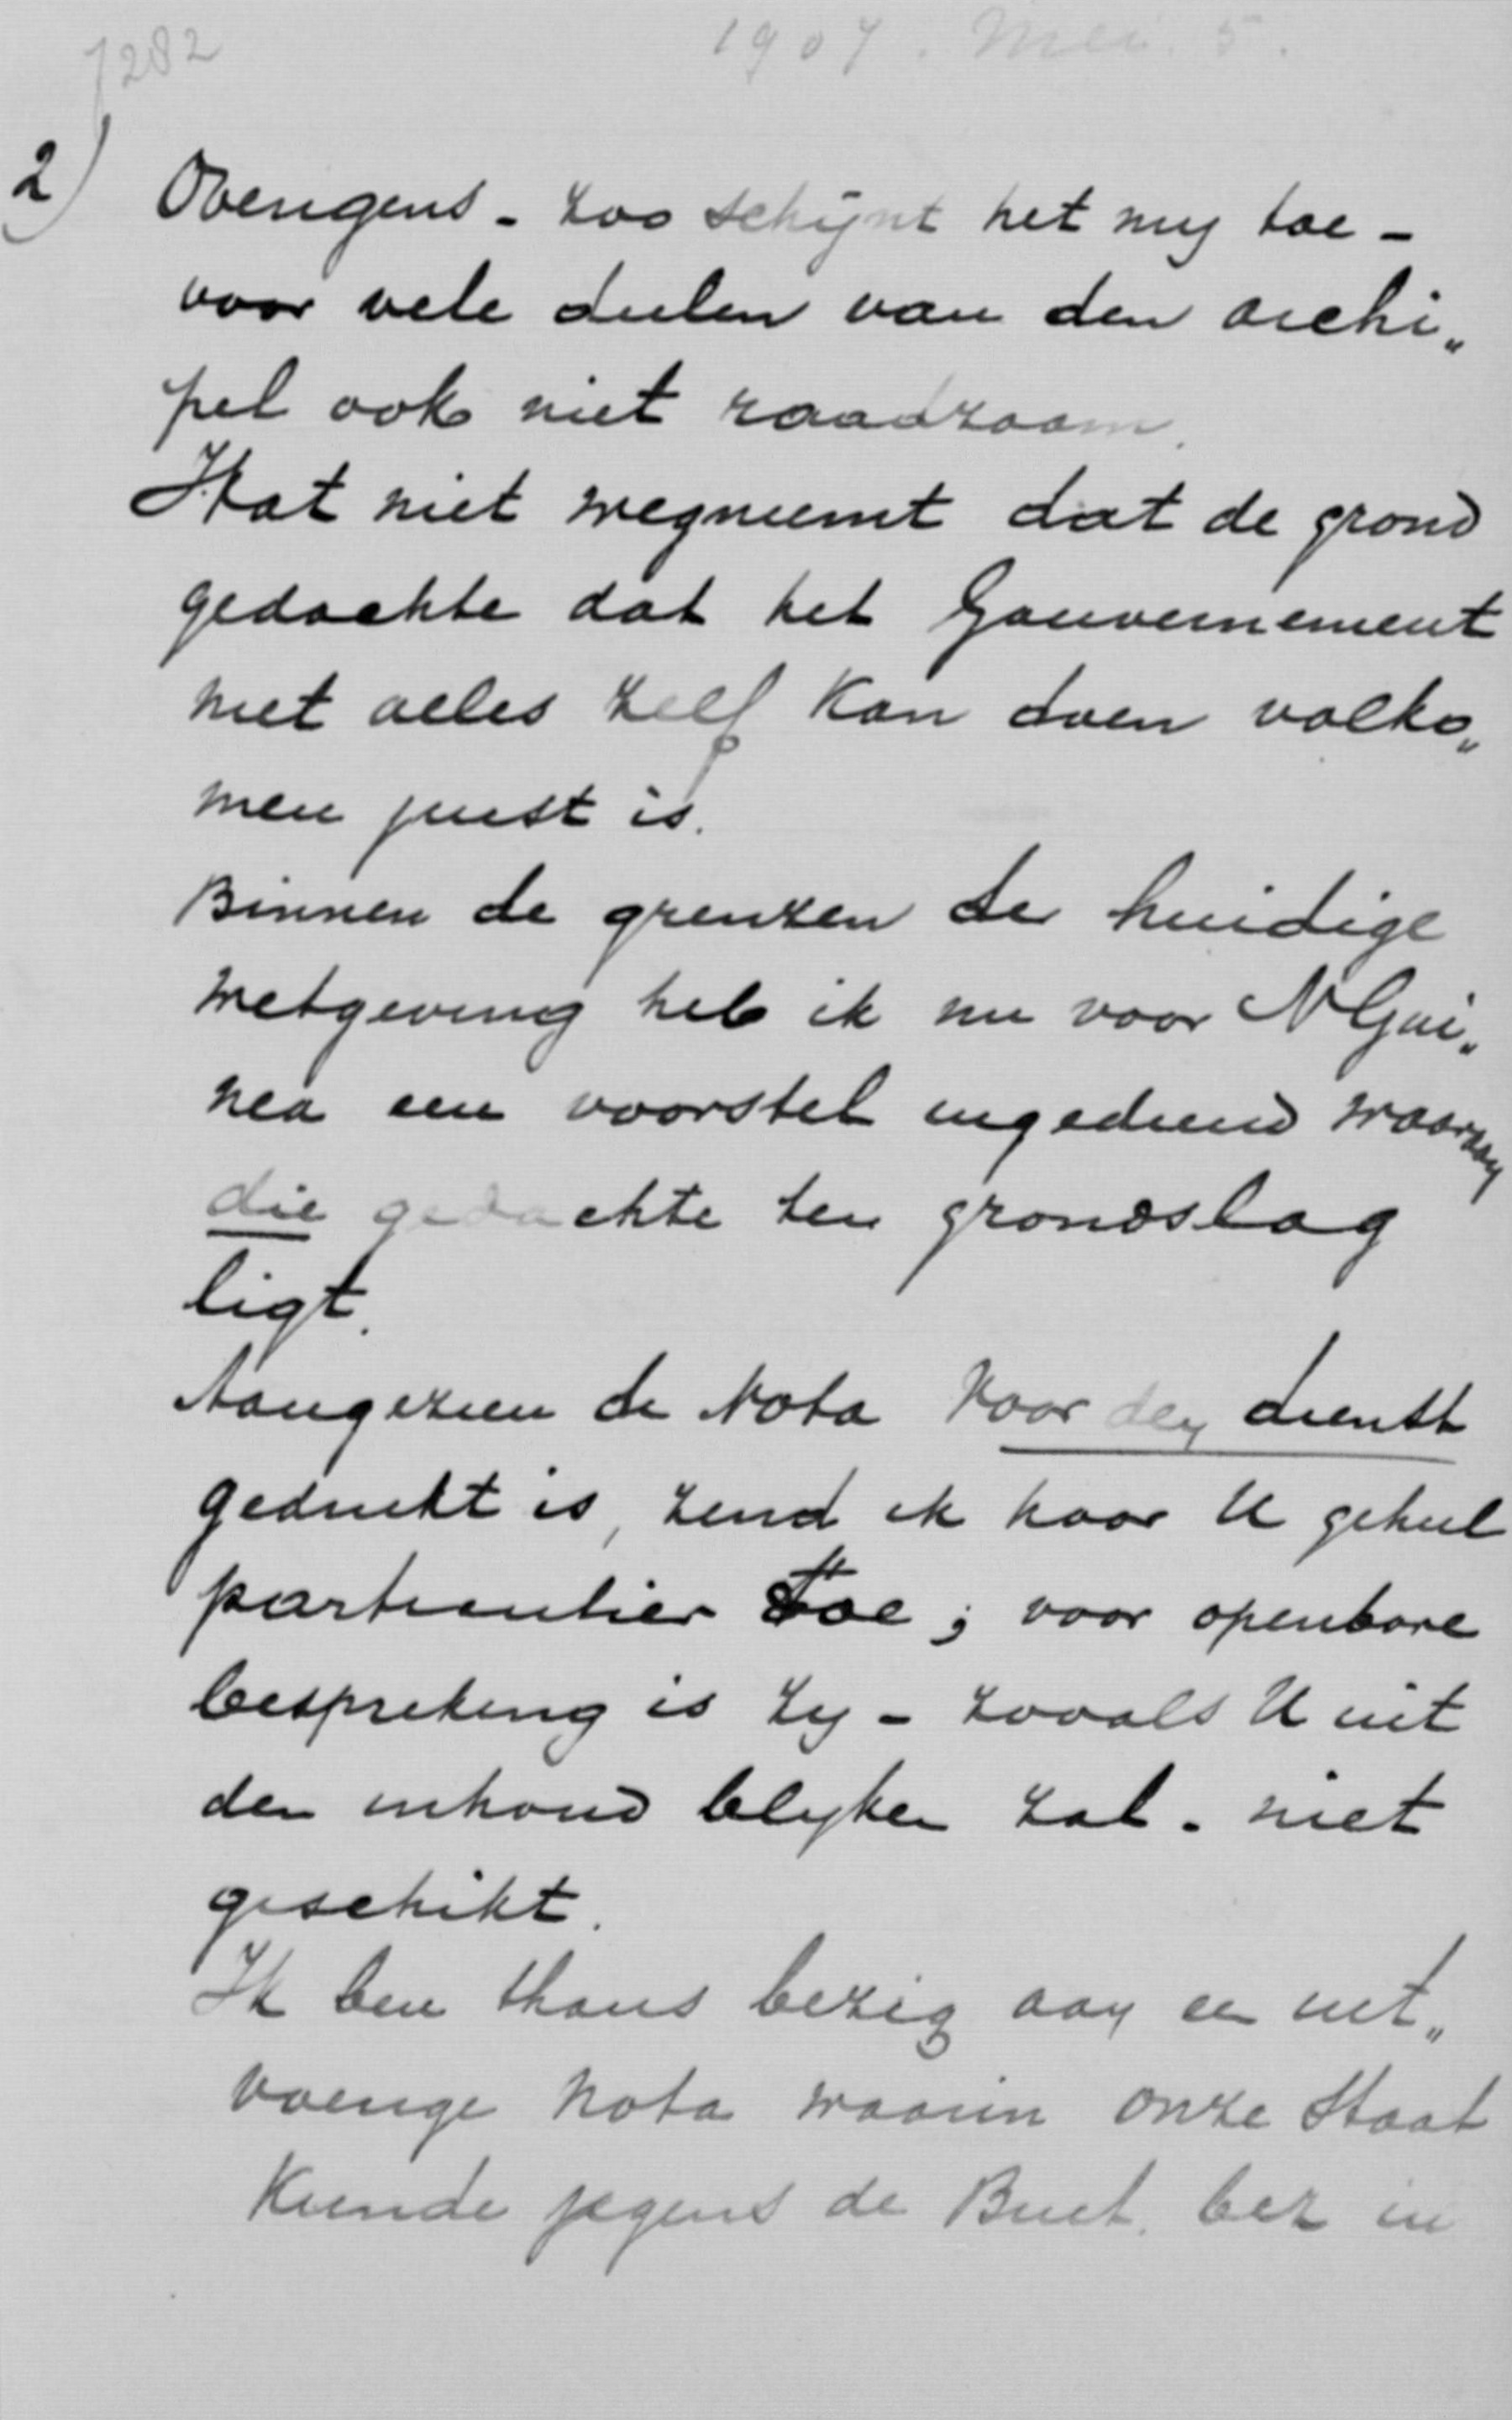 7282
1907. Mei. 5.
2)
Overigens - zoo schijnt het mij toe -
voor vele deelen van den archi„
pel ook niet raadzaam.
Wat niet wegneemt dat de grond
gedachte dat het Gouvernement
niet alles zelf kan doen volko„
men juist is.
Binnen de grenzen der huidige
wetgeving heb ik nu voor N Gui„
nea een voorstel ingediend waaraan
die gedachte ten grondslag
ligt.
Aangezien de Nota voor den dienst
gedrukt is, zend ik haar U geheel
particulier toe; voor openbare
bespreking is zij - zooals U uit
den inhoud blijken zal - niet
geschikt.
Ik ben thans bezig aan een uit„
voerige nota waarin onze Staat
kunde jegens de Buit. bez in